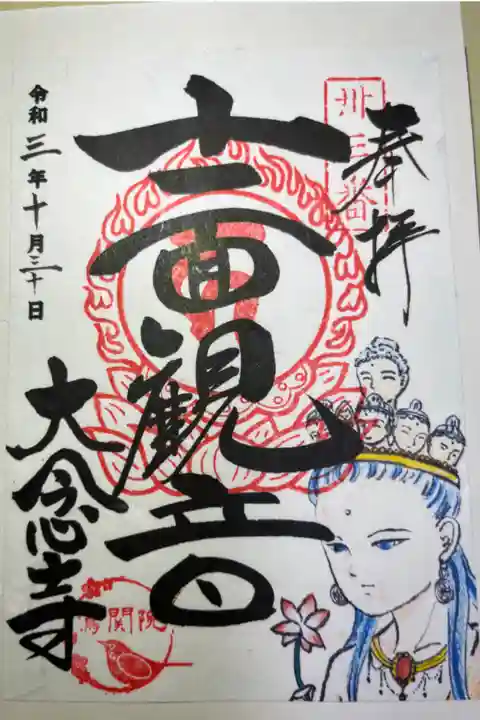 奉拝
卅三番
十一面観音
令和三年十月三十日
大念寺
鶯関院